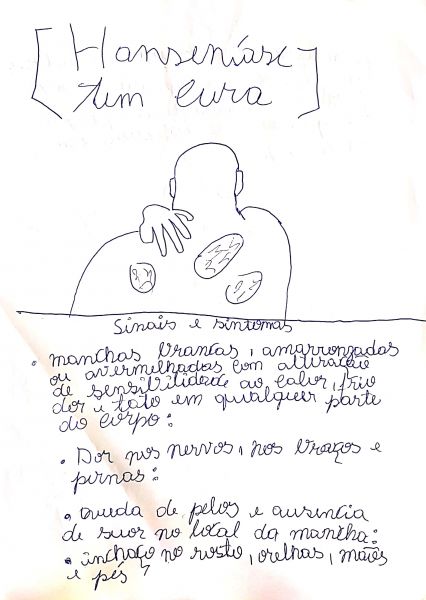 [Hanseníase
tem cura]
Sinais e sintomas
• manchas brancas, amarronzadas
ou avermelhadas com alteração
de sensibilidade ao calor, frio
dor e tato em qualquer parte
do corpo:
• Dor nos nervos, nos braços e
pernas:
• queda de pelos e ausencia
de suor no local da mancha:
• inchaço no rosto, orelhas, mãos
e pés